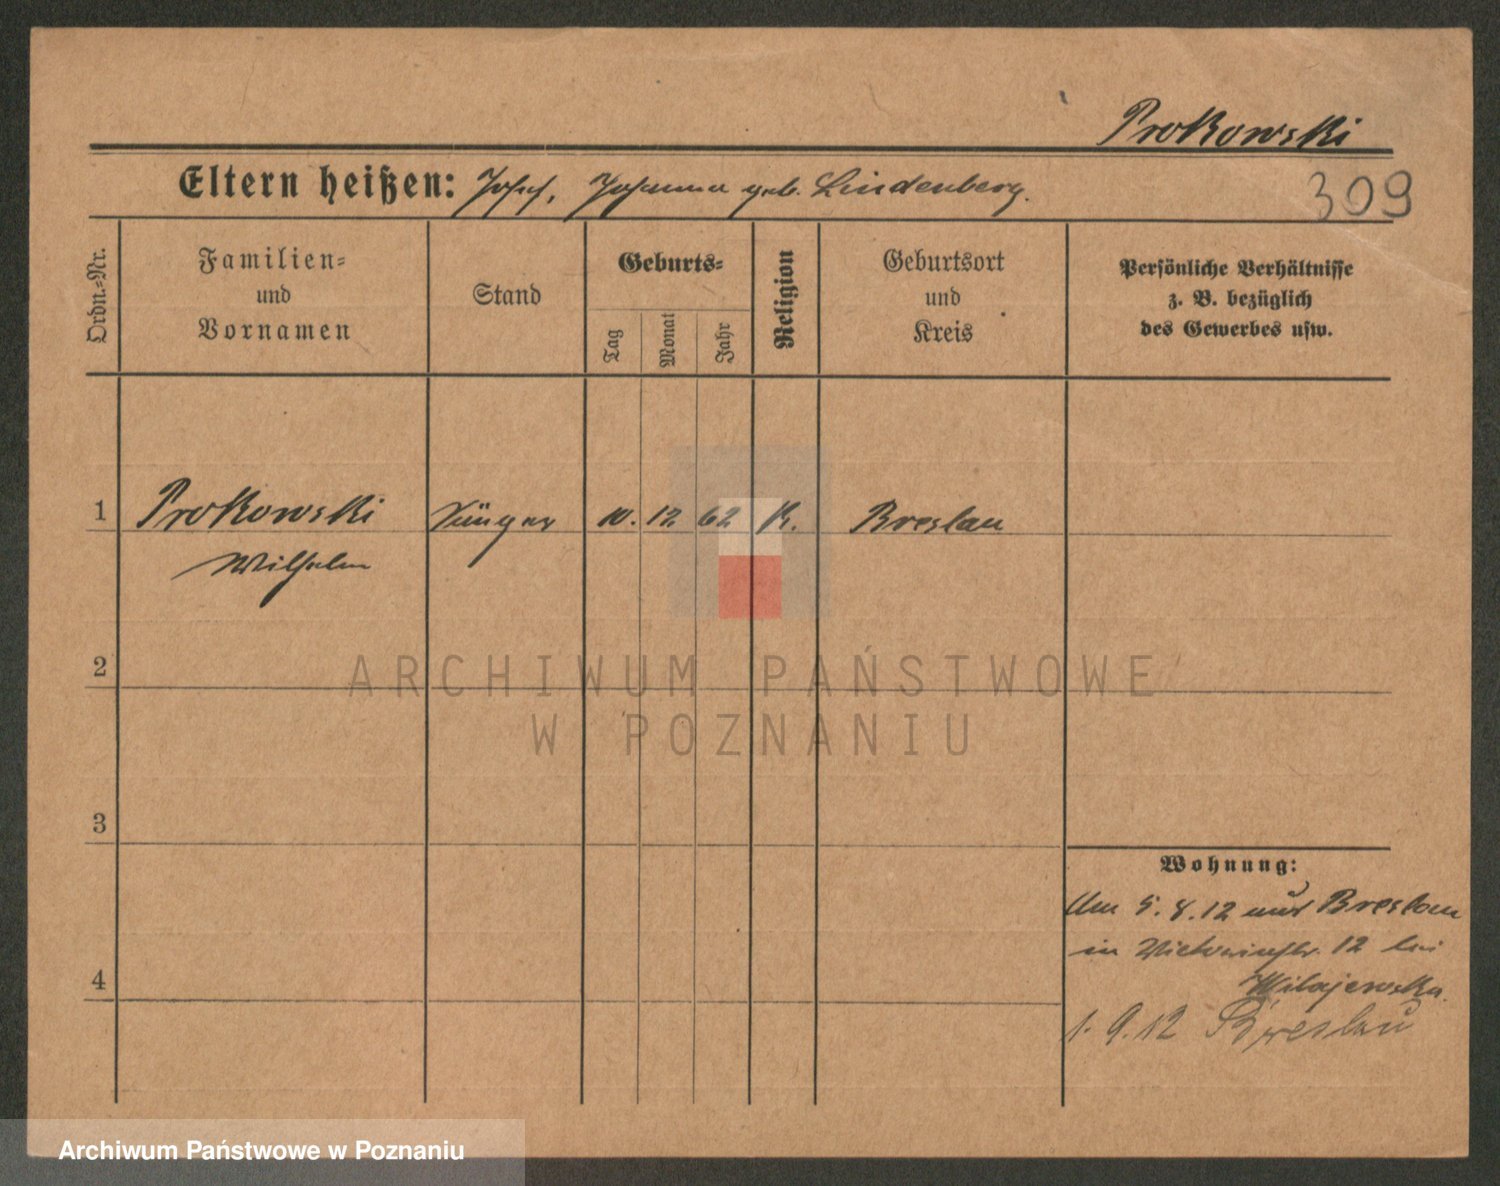 Prokowski
Eltern heißen: Josef, Johanna geb. Lindenberg.
309
Ordn.-Nr.
Familien-
und
Vornamen
Stand
Geburts-
Tag
Monat
Jahr
Religion
Geburtsort
und
Kreis
Persönliche Verhältnisse
z. B. bezüglich
des Gewerbes usw.
1 Prokowski Sänger 10. 12. 62 K. Breslau
Wilhelm
2
3
4
Wohnung:
Am 5.8.12 aus Breslau
in Victoriastr. 12 bei
1.9.12 Breslau
ARCHIWUM PAŃSTWOWE
W POZNANIU
Archiwum Państwowe w Poznaniu